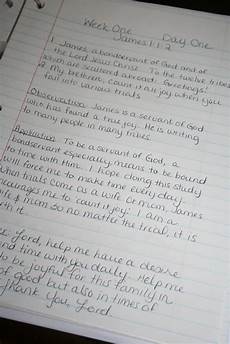 Week One Day One
James 1:1-2
1 James, a bondservant of God and of
the Lord Jesus Christ. To the twelve tribes
which are scattered abroad: Greetings!
2 My brethren, count it all joy when you
fall into various trials
Observation: James is a servant of God
who has found a true joy. He is writing
to many people in many tribes.
Application: To be a servant of God, a
bondservant especially means to be bound
to time with Him. I hope doing this study
will force me to make time every day.
When trials come as a wife or mom, James
encourages me to count it joy. I am a
wife & mom so no matter the trial, it is
with it
Lord, help me have a desire
time with you daily. Help me
to be joyful for this family in
of good but also in times of
Thank you, Lord